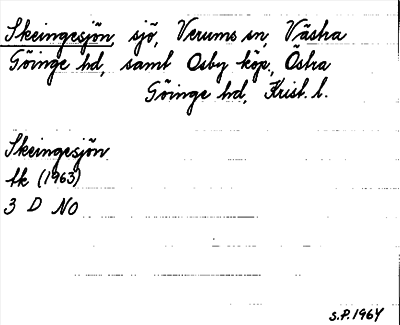 Skeingesjön, sjö, Verums sn, Västra
Göinge hd, samt Osby köp., Östra
Göinge hd, Krist. l.
Skeingesjön
tk (1963)
3 D NO
S.P. 1964